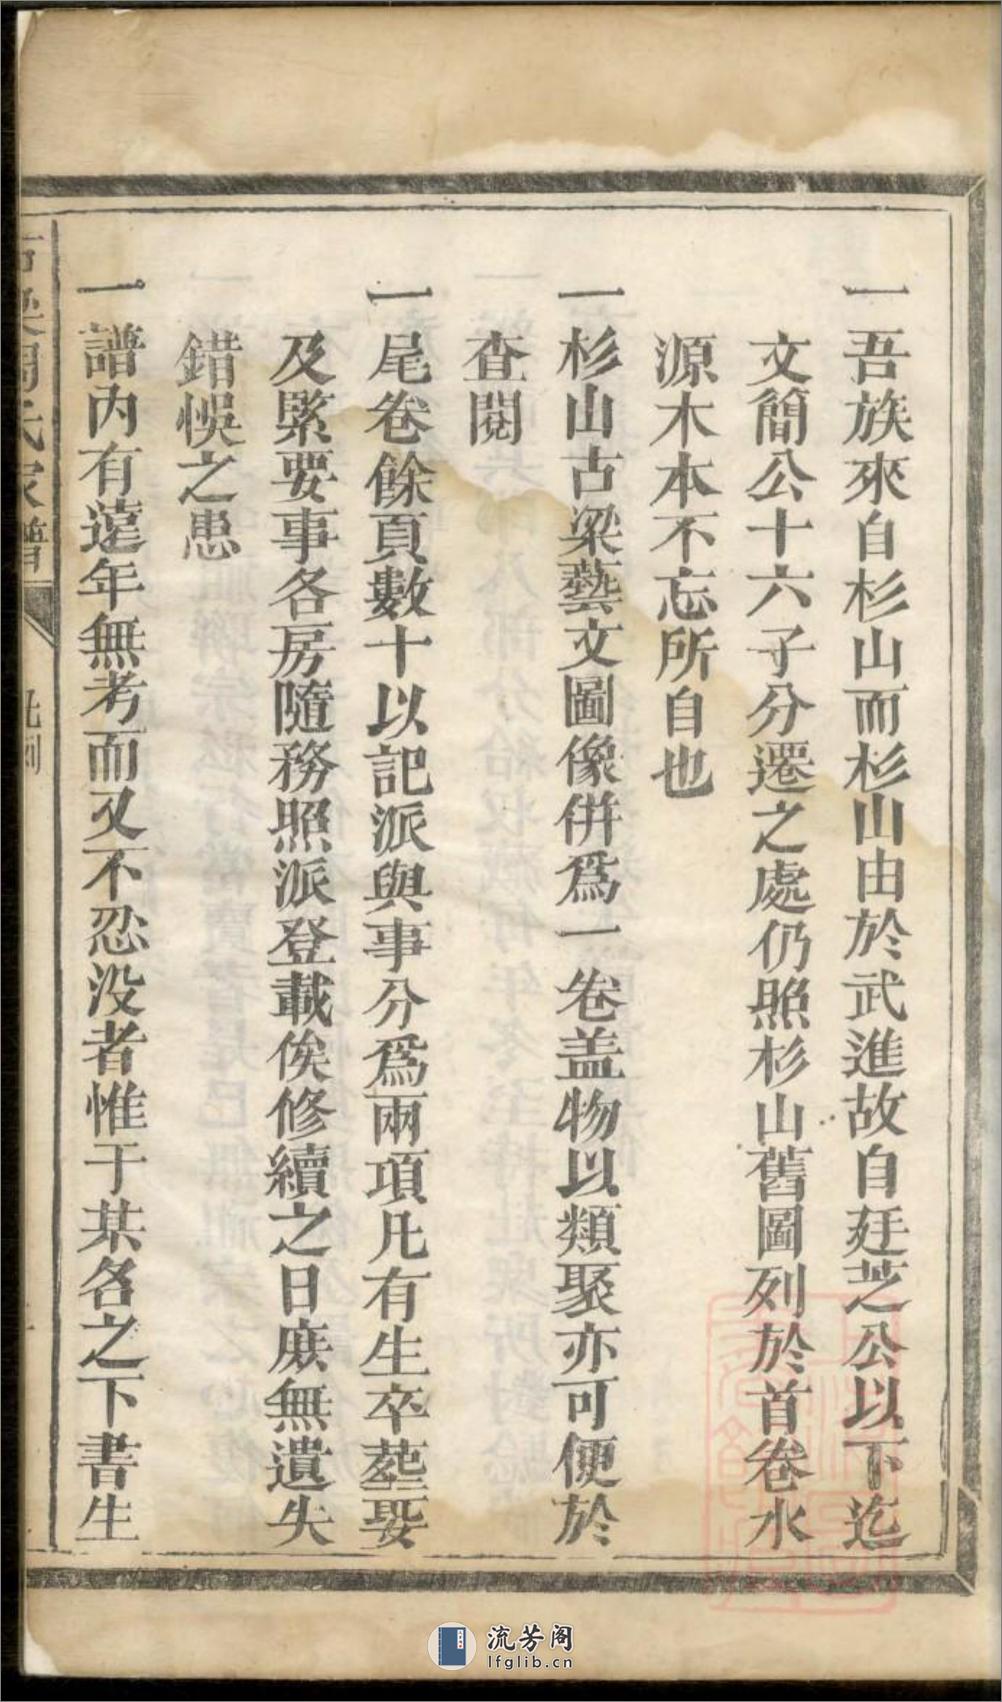 一吾族來自杉山而杉山由於武進故自廷芝公以下迄
文簡公十六子分遷之處仍照杉山舊圖列於首卷水
源木本不忘所自也
一杉山古梁藝文圖像併爲一卷盖物以類聚亦可便於
查閱
一尾卷餘頁數十以記派與事分爲兩項凡有生卒塟娶
及緊要事各房隨務照派登載俟修續之日庶無遺失
錯悞之患
一譜內有遠年無考而又不忍没者惟于某名之下書生
古梁周氏家譜
凡例
流芳阁
lfglib.cn